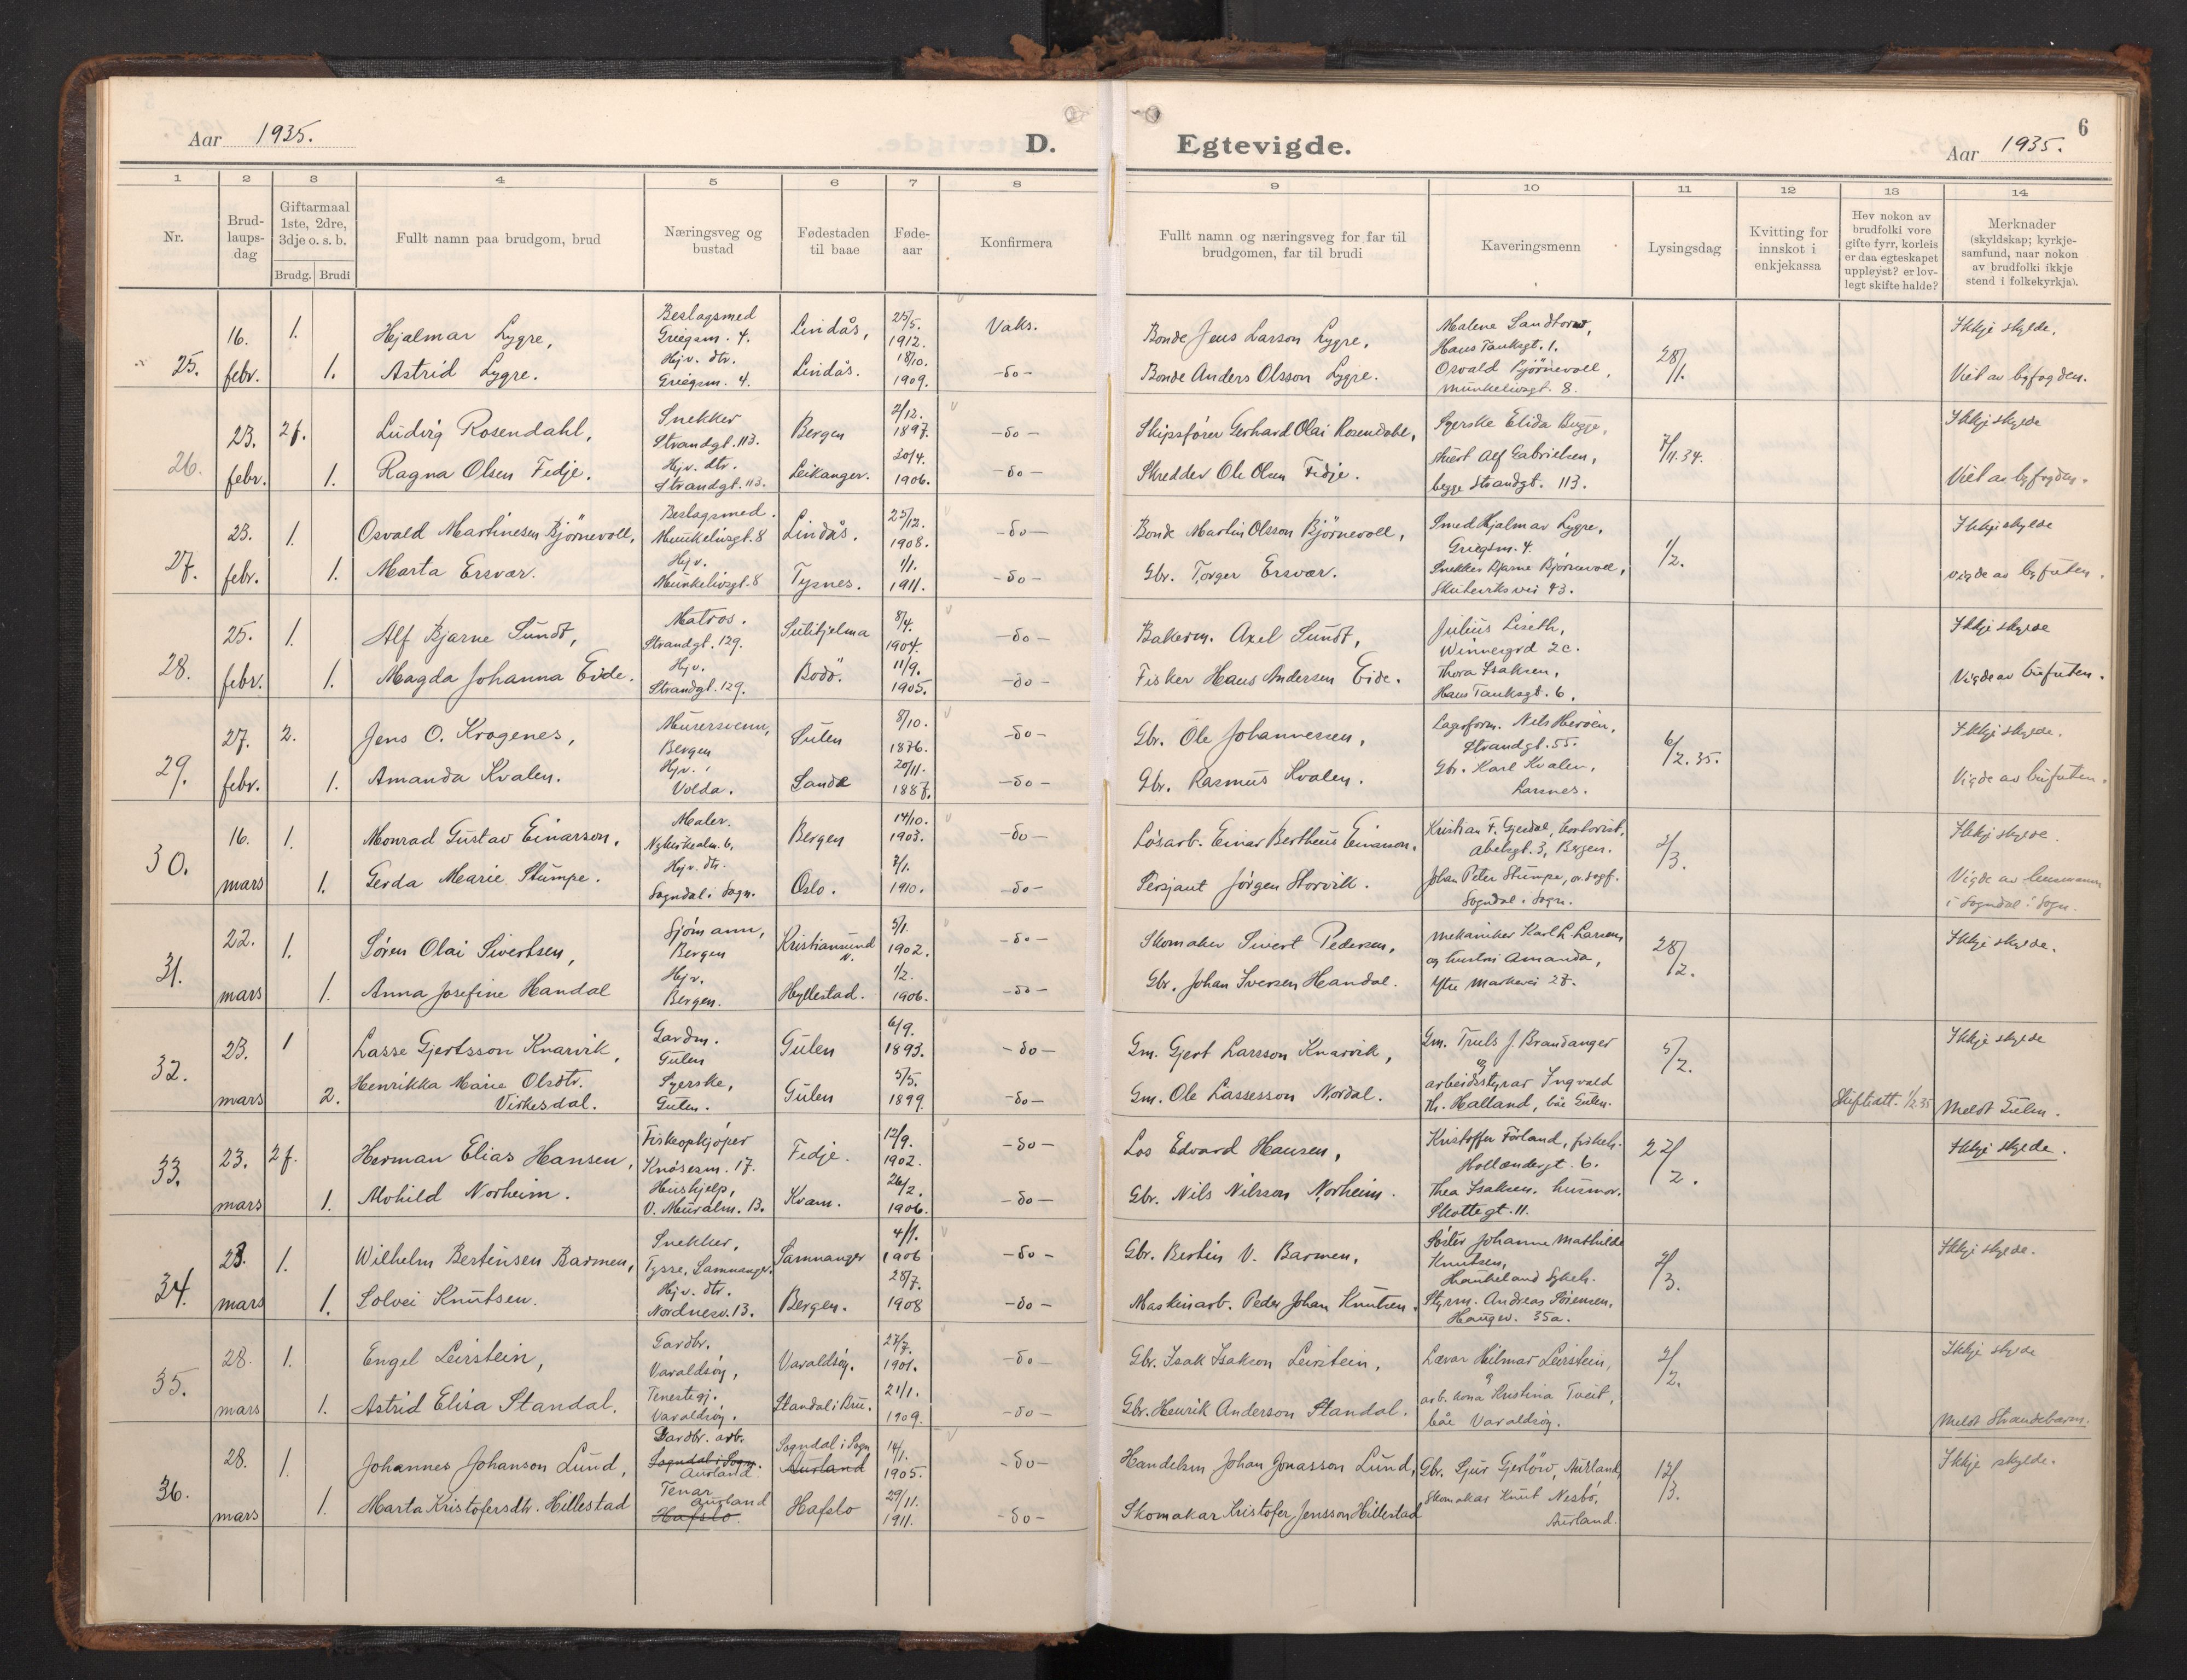 Aar 1935.
D.
Egtevigde.
6
Aar 1935.
1 2 3 4 5 6 7 8 9 10 11 12 13 14
Nr.
Brud-
laups-
dag
Giftarmaal
1ste, 2dre,
3dje o. s. b.
Brudg. Brudi
Fullt namn paa brudgom, brud
Næringsveg og
bustad
Fødestaden
til baae
Føde-
aar
Konfirmera
Fullt namn og næringsveg for far til
brudgomen, far til brudi
Kaveringsmenn
Lysingsdag
Kvitting for
innskot i
enkjekassa
Hev nokon av
brudfolki vore
gifte fyrr, korleis
er daa egteskapet
uppløyst? er lov-
legt skifte halde?
Merknader
(skyldskap; kyrkje-
samfund, naar nokon
av brudfolki ikkje
stend i folkekyrkja).
25.
16. febr.
1. Hjalmar Lygre,
Beslagsmed
Griegsm. 4.
Lindås,
25/5. 1912.
Vaks.
Bonde Jens Larson Lygre,
Malene Sandtorv,
Hans Tanksgt. 1.
28/1.
Ikkje skylde.
1. Astrid Lygre.
Hjv. dtr.
Griegsm. 4.
Lindås.
18/10. 1909.
-do-
Bonde Anders Olsson Lygre.
Osvald Bjørnevoll,
Munkelivsgt. 8.
Viet av byfogden.
26.
23. febr.
2f. Ludvig Rosendahl,
Snekker
Strandgt. 113.
Bergen
2/12. 1897.
-do-
Skipsfører Gerhard Olai Rosendahl,
Syerske Elida Bugge,
7/11.34.
Ikkje skylde
1. Ragna Olsen Fedje.
Hjv. dtr.
Strandgt. 113.
Leikanger.
20/4. 1906.
-do-
Skredder Ole Olsen Fedje.
Alf Gabrielsen,
begge Strandgt. 113.
Viet av byfogden.
27.
23. febr.
1. Osvald Martinesen Bjørnevoll,
Beslagsmed.
Munkelivsgt. 8
Lindås.
25/12. 1908.
-do-
Bonde Martin Olsson Bjørnevoll,
Smed Hjalmar Lygre,
Griegsm. 4.
1/2.
Ikkje skylde
1. Marta Ersvær.
Hjv.
Munkelivsgt. 8
Tysnes.
1/1. 1911.
-do-
Gbr. Torger Ersvær.
Snekker Bjarne Bjørnevoll,
Skuteviksvei 43.
vigde av byfuten.
28.
25. febr.
1. Alf Bjarne Sundt,
Matros.
Strandgt. 129.
Sulitjelma
8/4. 1904.
-do-
Bakerm. Axel Sundt,
Julius Liseth,
Winnergrd 2c.
Ikkje skylde
1. Magda Johanna Eide.
Hjv.
Strandgt. 129.
Bodö.
11/9. 1905.
-do-
Fisker Hans Andersen Eide.
Thora Isaksen,
Hans Tanksgt. 6.
Vigde av bufuten.
29.
27. febr.
2. Jens O. Krogenes,
Murersvenn,
Bergen
Sulen
8/10. 1876.
-do-
Gbr. Ole Johannessen,
Lagerform. Nils Herøen,
Strandgt. 55.
6/2.35.
Ikkje skylde.
1. Amanda Kvalen.
Hjv.
Volda.
Sande
20/11. 1887.
-do-
Gbr. Rasmus Kvalen.
Gbr. Karl Kvalen,
Larsnes.
Vigde av bufuten.
30.
16. mars
1. Monrad Gustav Einarson,
Maler.
Nykirkealm. 6.
Bergen
14/10. 1903.
-do-
Løsarb. Einar Bertheus Einarson.
Kristian F. Gjerdal, kontorist,
Abelsgt. 3, Bergen.
2/3.
Ikkje skylde.
1. Gerda Marie Stumpe.
Hjv. dtr.
Sogndal i Sogn.
Oslo.
3/1. 1910.
-do-
Sersjant Jørgen Storvik.
Johan Peter Stumpe,
Sogndal i Sogn.
Vigde av lensmannen
i Sogndal i Sogn.
31.
22. mars
1. Søren Olai Sivertsen,
Sjømann,
Bergen
Kristiansund N.
5/1. 1902.
-do-
Skomaker Sivert Pedersen,
Mekaniker Karl L. Larsen
og hustru Amanda,
28/2.
Ikkje skylde.
1. Anna Josefine Handal
Hjv.
Bergen.
Hyllestad.
1/2. 1906.
-do-
Gbr. Johan Iversen Handal.
Ytre Markevei 27.
32.
23. mars
1 Lasse Gjertsson Knarvik,
Gardm.
Gulen
Gulen
6/9. 1893.
-do-
Gm. Gjert Larsson Knarvik,
Gm. Truls J. Brandanger
og
5/2.
Ikkje skylde
2. Henrikka Marie Olsdtr.
Virkesdal.
Syerske,
Gulen.
Gulen
5/5. 1899.
-do-
Gm. Ole Lassesson Nordal.
arbeidsstyrar Ingvald
Th. Halland, båe Gulen.
Skifteatt. 1/2 35
Meldt Gulen.
33.
23. mars
2f. Herman Elias Hansen,
Fiskeopkjøper
Knøsesm. 17.
Fedje.
12/9. 1902.
-do-
Los Edvard Hansen,
Kristoffer Førland, fiskeh.
Hollendergt. 6.
27/2.
Ikkje skylde.
1. Alvhild Norheim.
Hushjelp,
V. Muralm. 13.
Kvam.
26/2. 1906.
-do-
Gbr. Nils Nilsson Norheim.
Thea Isaksen, husmor.
Skottegt. 11.
34.
23. mars
1. Wilhelm Bertinsen Barmen,
Snekker,
Tysse, Samnanger.
Samnanger
4/1. 1906
-do-
Gbr. Bertin V. Barmen,
Søster Johanne Mathilde
Knutsen,
Haukeland Sykeh.
2/3.
Ikkje skylde.
1. Solvei Knutsen.
Hjv. dtr.
Nordnesv. 13.
Bergen.
28/7. 1908
-do-
Maskinarb. Peder Johan Knutsen.
Styrm. Andreas Sørensen,
Haugev. 35a.
35.
28. mars
1. Engel Leirstein,
Gardbr.
Varaldsøy,
Varaldsøy.
27/7. 1901.
-do-
Gbr. Isak Isakson Leirstein,
Lærar Hilmar Leirstein,
2/2.
Ikkje skylde
1. Astrid Elisa Standal.
Tenestgj.
Varaldsøy.
Standal i Bru.
21/1. 1909.
-do-
Gbr. Henrik Anderson Standal.
arb. kona Kristina Tveit,
båe Varaldsøy.
Meldt Strandebarm.
36.
28. mars
1. Johannes Johanson Lund,
Gardbr. arb.
Sogndal i Sogn.
Aurland.
Sogndal i Sogn
Aurland
14/1. 1905.
-do-
Handelsm Johan Jonasson Lund,
Gbr. Sjur Gjerløw, Aurland
12/3.
Ikkje skylde.
1. Marta Kristofersdtr. Hillestad
Tenar
Aurland
Hafslo.
Hafslo
29/11. 1911.
-do-
Skomakar Kristofer Jensson Hillestad
Skomakar Knut Nesbø,
Aurland.